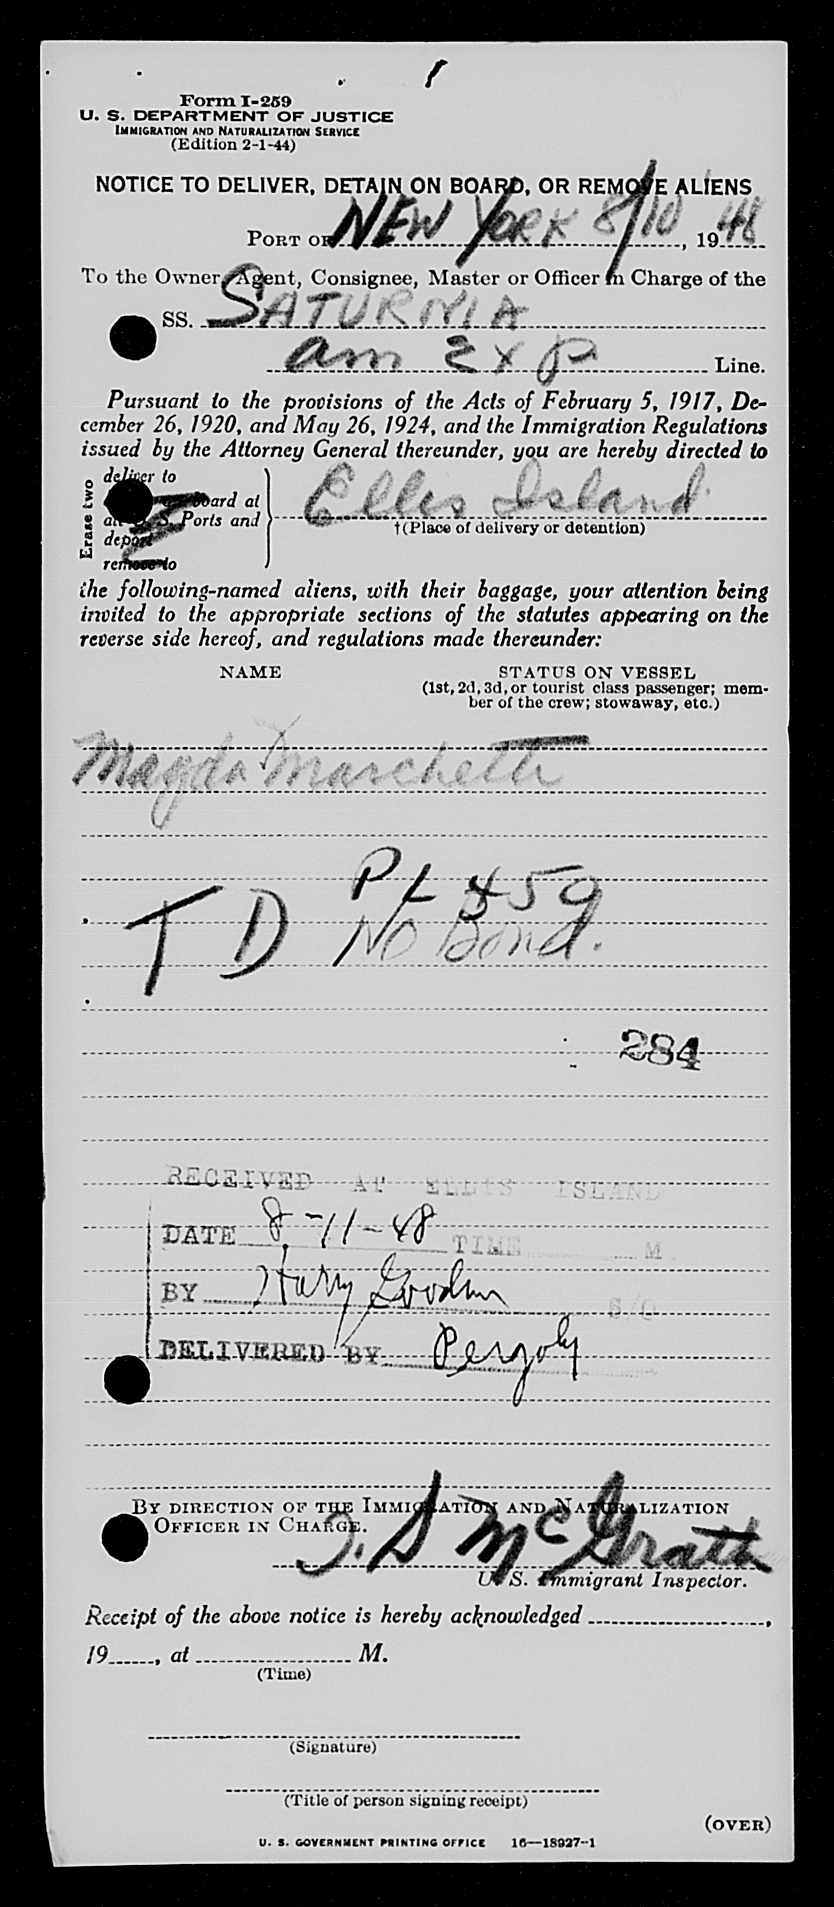 Form I-259
U. S. DEPARTMENT OF JUSTICE
IMMIGRATION AND NATURALIZATION SERVICE
(Edition 2-1-44)
NOTICE TO DELIVER, DETAIN ON BOARD, OR REMOVE ALIENS
PORT OF NEW YORK 8/10, 1948
To the Owner, Agent, Consignee, Master or Officer in Charge of the
SS. SATURNIA
am Exp Line.
Pursuant to the provisions of the Acts of February 5, 1917, De-
cember 26, 1920, and May 26, 1924, and the Immigration Regulations
issued by the Attorney General thereunder, you are hereby directed to
Erase two
deliver to
board at
Ports and
deport
remove to
Ellis Island
†(Place of delivery or detention)
the following-named aliens, with their baggage, your attention being
invited to the appropriate sections of the statutes appearing on the
reverse side hereof, and regulations made thereunder:
NAME STATUS ON VESSEL
(1st, 2d, 3d, or tourist class passenger; mem-
ber of the crew; stowaway, etc.)
Magda Marchetti
PL 459
T D No Bond.
284
RECEIVED AT ELLIS ISLAND
DATE 8-11-48 TIME M
BY Harry S/O
DELIVERED BY
BY DIRECTION OF THE IMMIGRATION AND NATURALIZATION
OFFICER IN CHARGE.
J. S McGrath
U. S. Immigrant Inspector.
Receipt of the above notice is hereby acknowledged ,
19 , at M.
(Time)
(Signature)
(Title of person signing receipt)
(OVER)
U. S. GOVERNMENT PRINTING OFFICE 16—18927-1